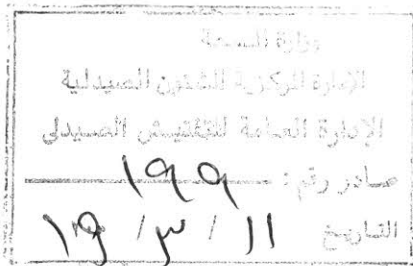 وزارة الصحة
الإدارة المركزية للشئون الصيدلية
الإدارة العامة للتفتيش الصيدلي
صادر رقم : ١٩٩
التاريخ ١١ / ٣ / ١٩